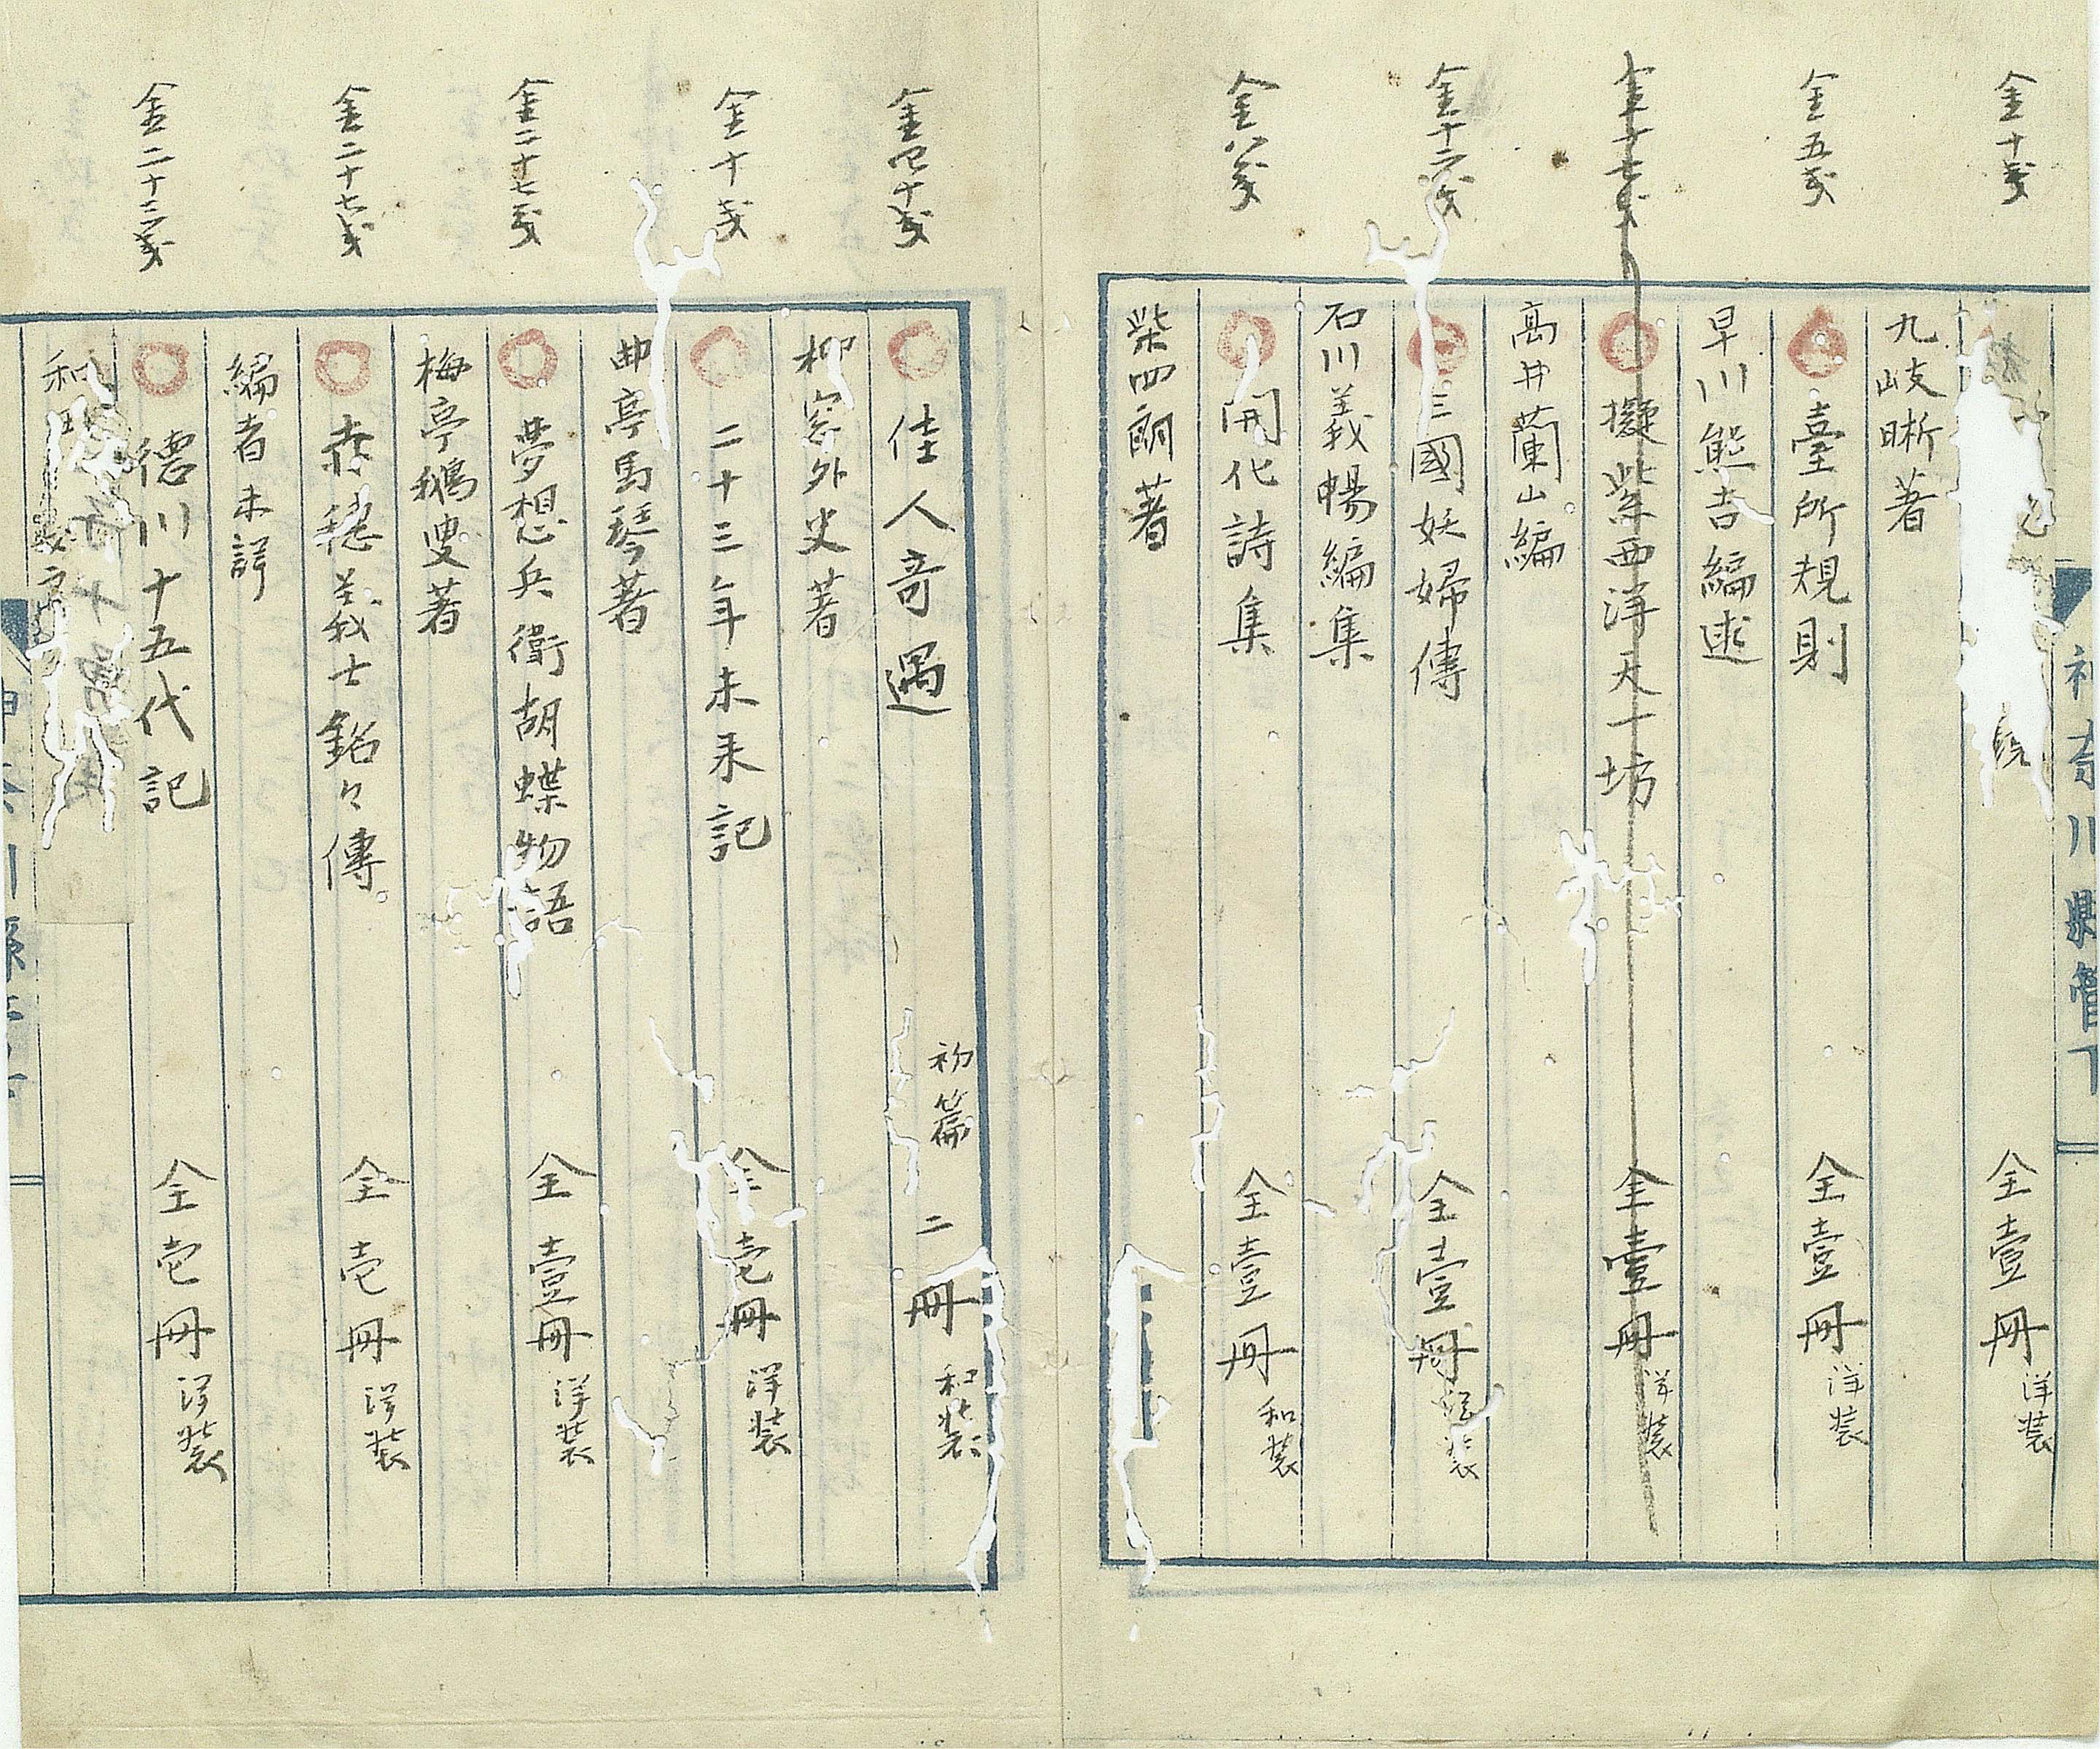 金十戋
全壹冊 洋装
九岐晰著
金五戋
臺所規則 全壹冊 洋装
早川熊吉編述
金十七戋
擬紫西洋天一坊 全壹冊 洋装
高井蘭山編
金十二戋
三國妖婦傳 全壹冊 洋装
石川義暢編集
金八戋
開化詩集 全壹冊 和装
柴四朗著
金四十戋
佳人奇遇 初篇 二冊 和装
柳窓外史著
金十戋
二十三年未来記 全壱冊 洋装
曲亭馬琴著
金二十七戋
夢想兵衛胡蝶物語 全壹冊 洋装
梅亭鵞叟著
金二十七戋
赤穂義士銘々傳 全壱冊 洋装
編者未詳
金二十三戋
德川十五代記 全壱冊 洋装
和
神奈川縣管下